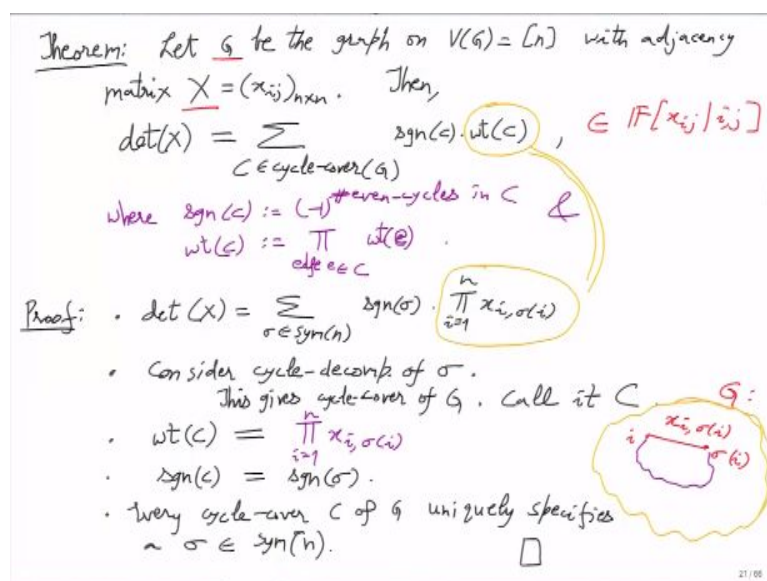 Theorem: Let G be the graph on V(G) = [n] with adjacency
matrix X = (x_ij)_{n×n}. Then,
det(X) = Σ_{C ∈ cycle-cover(G)} sgn(C)·wt(C), ∈ 𝔽[x_ij | i,j]
where sgn(C) := (-1)^{#even-cycles in C} &
wt(C) := ∏_{edge e∈C} wt(e).
Proof: · det(X) = Σ_{σ∈Sym(n)} sgn(σ)· ∏_{i=1}^{n} x_{i,σ(i)}
· Consider cycle-decomp. of σ.
This gives cycle-cover of G. Call it C.
G:
· wt(C) = ∏_{i=1}^{n} x_{i,σ(i)}
i x_{i,σ(i)} σ(i)
· sgn(C) = sgn(σ).
· Every cycle-cover C of G uniquely specifies
a σ ∈ Sym(n). □
21 / 66